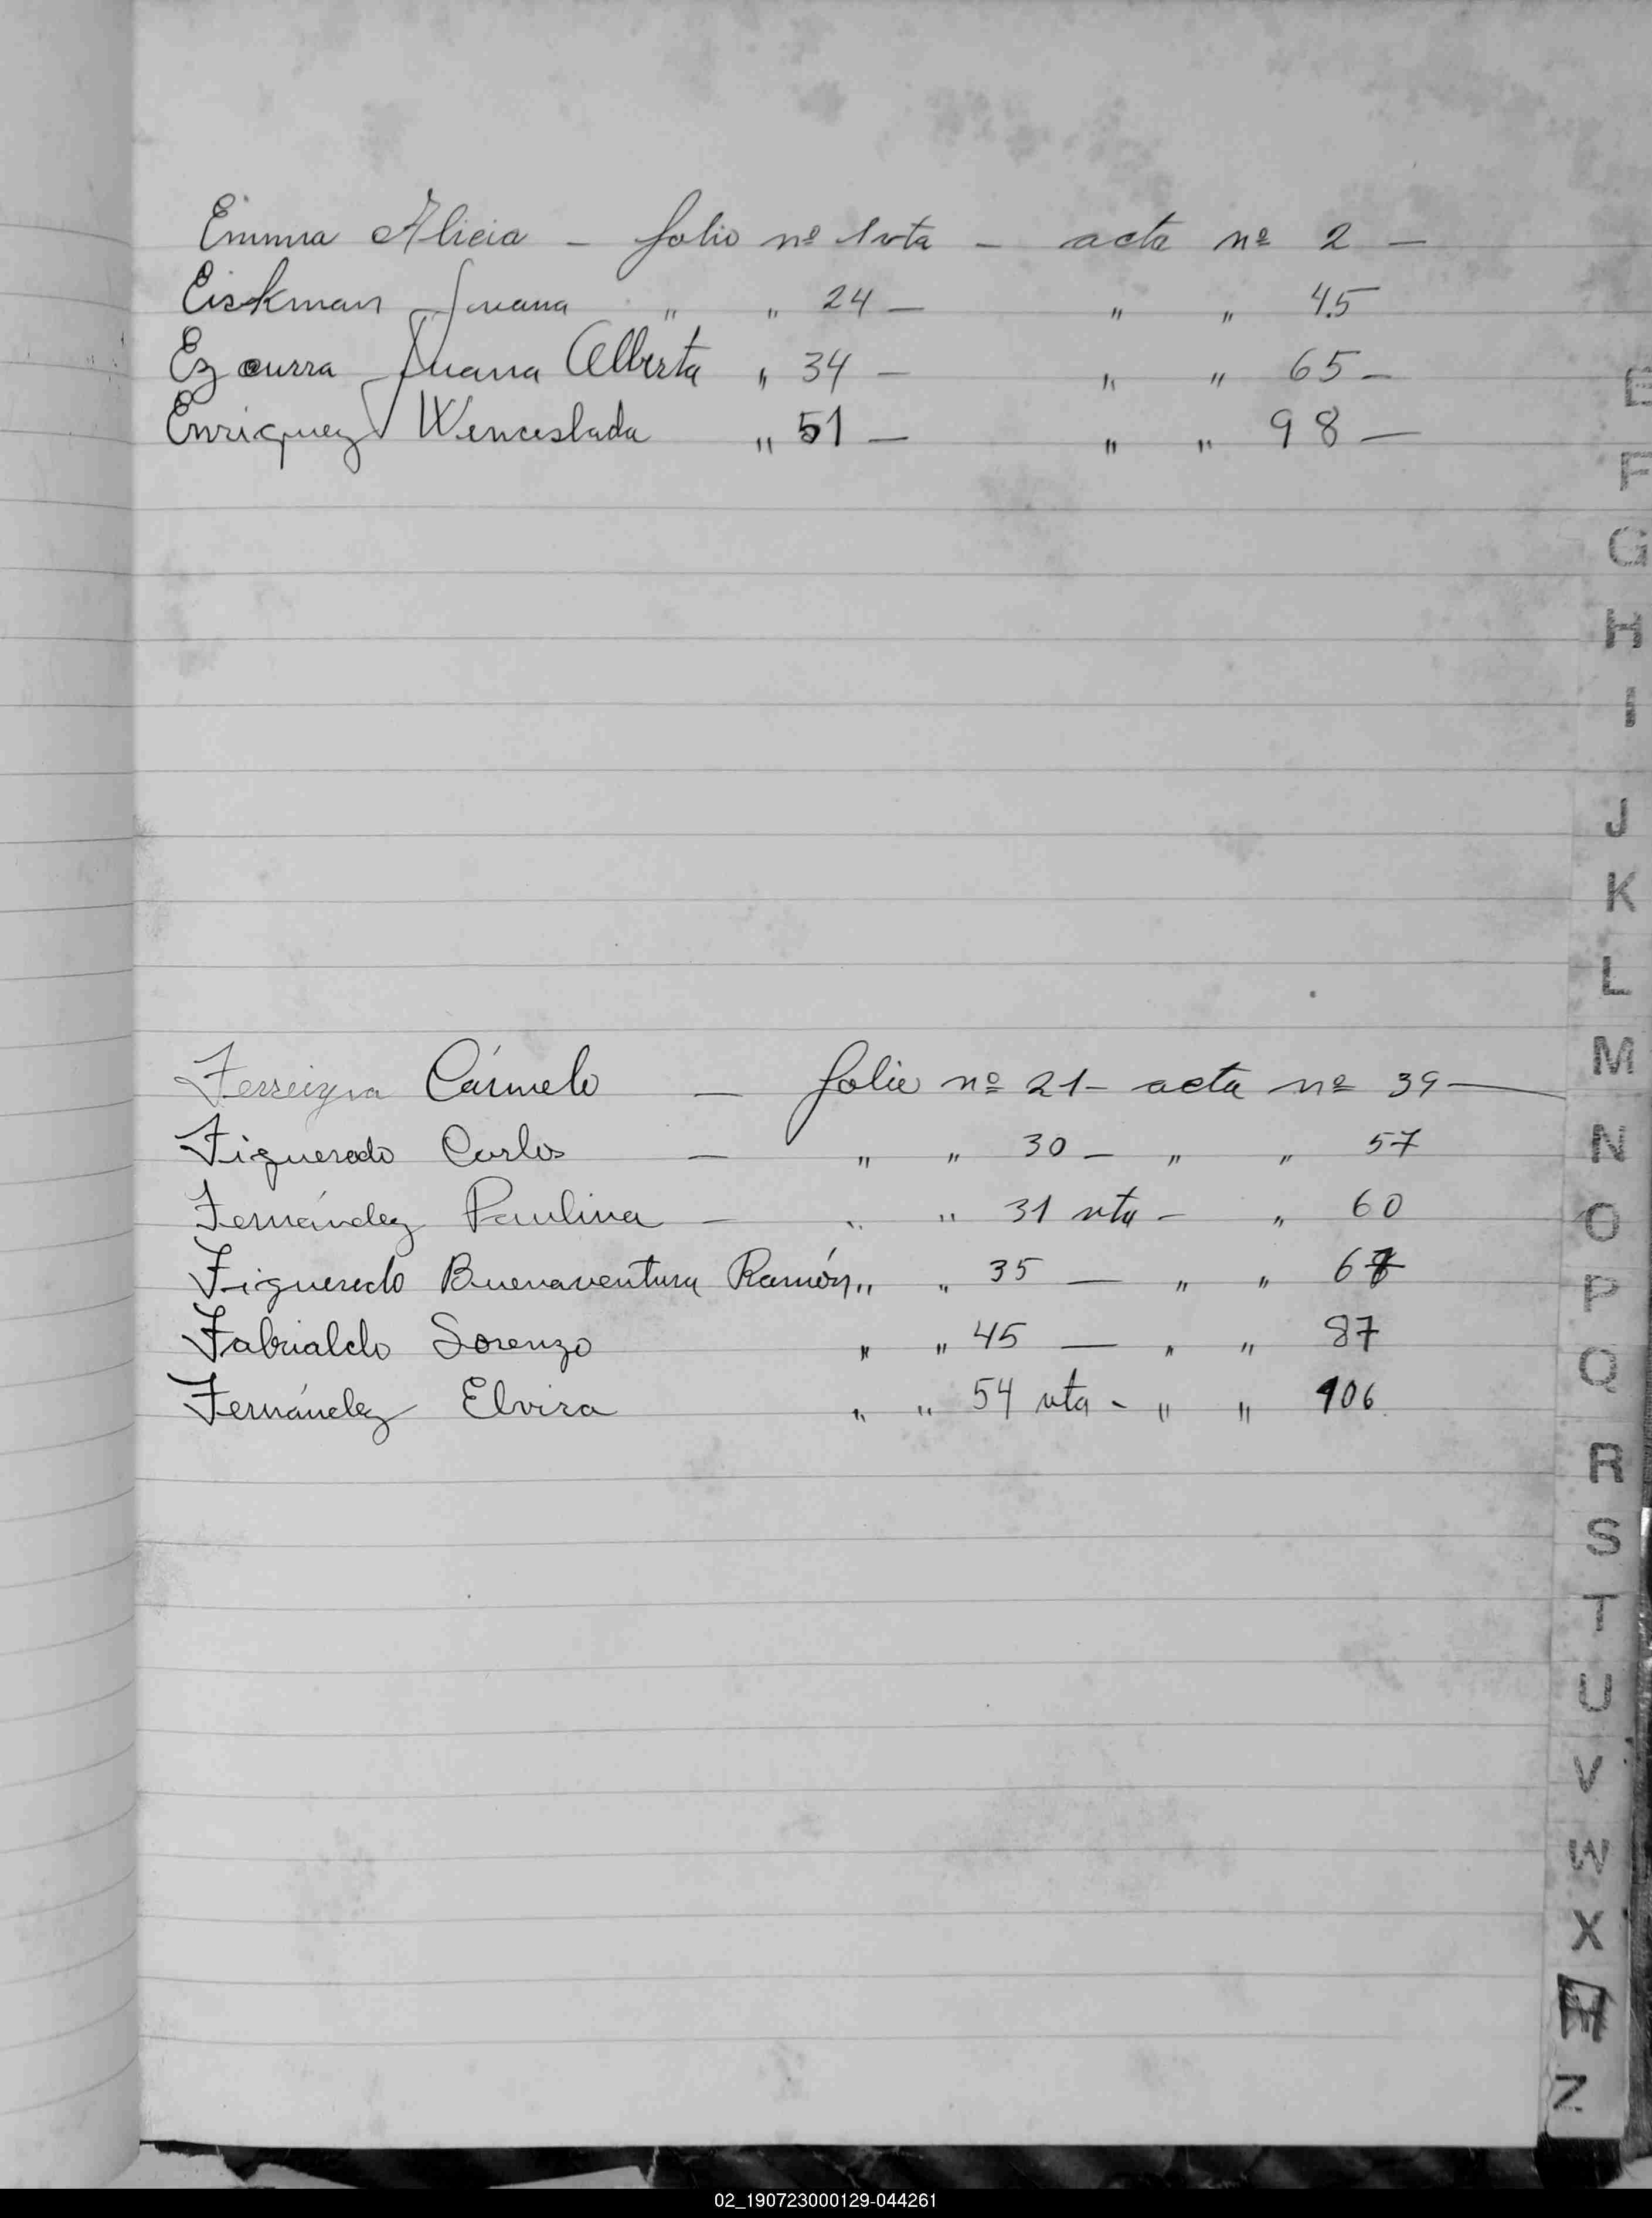 Emma Alicia - folio nº 1 vta - acta nº 2 -
Eiskman Juana " " 24 - " " 45
Ezcurra Juana Alberta " 34 - " " 65 -
Enriquez Wenceslada " 51 - " " 98 -
Ferreigra Cármelo - folio nº 21 - acta nº 39 -
Figueredo Carlos - " " 30 - " " 57
Fernández Paulina - " " 31 vta - " 60
Figueredo Buenaventura Ramón " " 35 - " " 67
Fabrialdo Lorenzo " " 45 - " " 87
Fernández Elvira " " 54 vta - " " 106
E
F
G
H
I
J
K
L
M
N
O
P
Q
R
S
T
U
V
W
X
Z
02_190723000129-044261